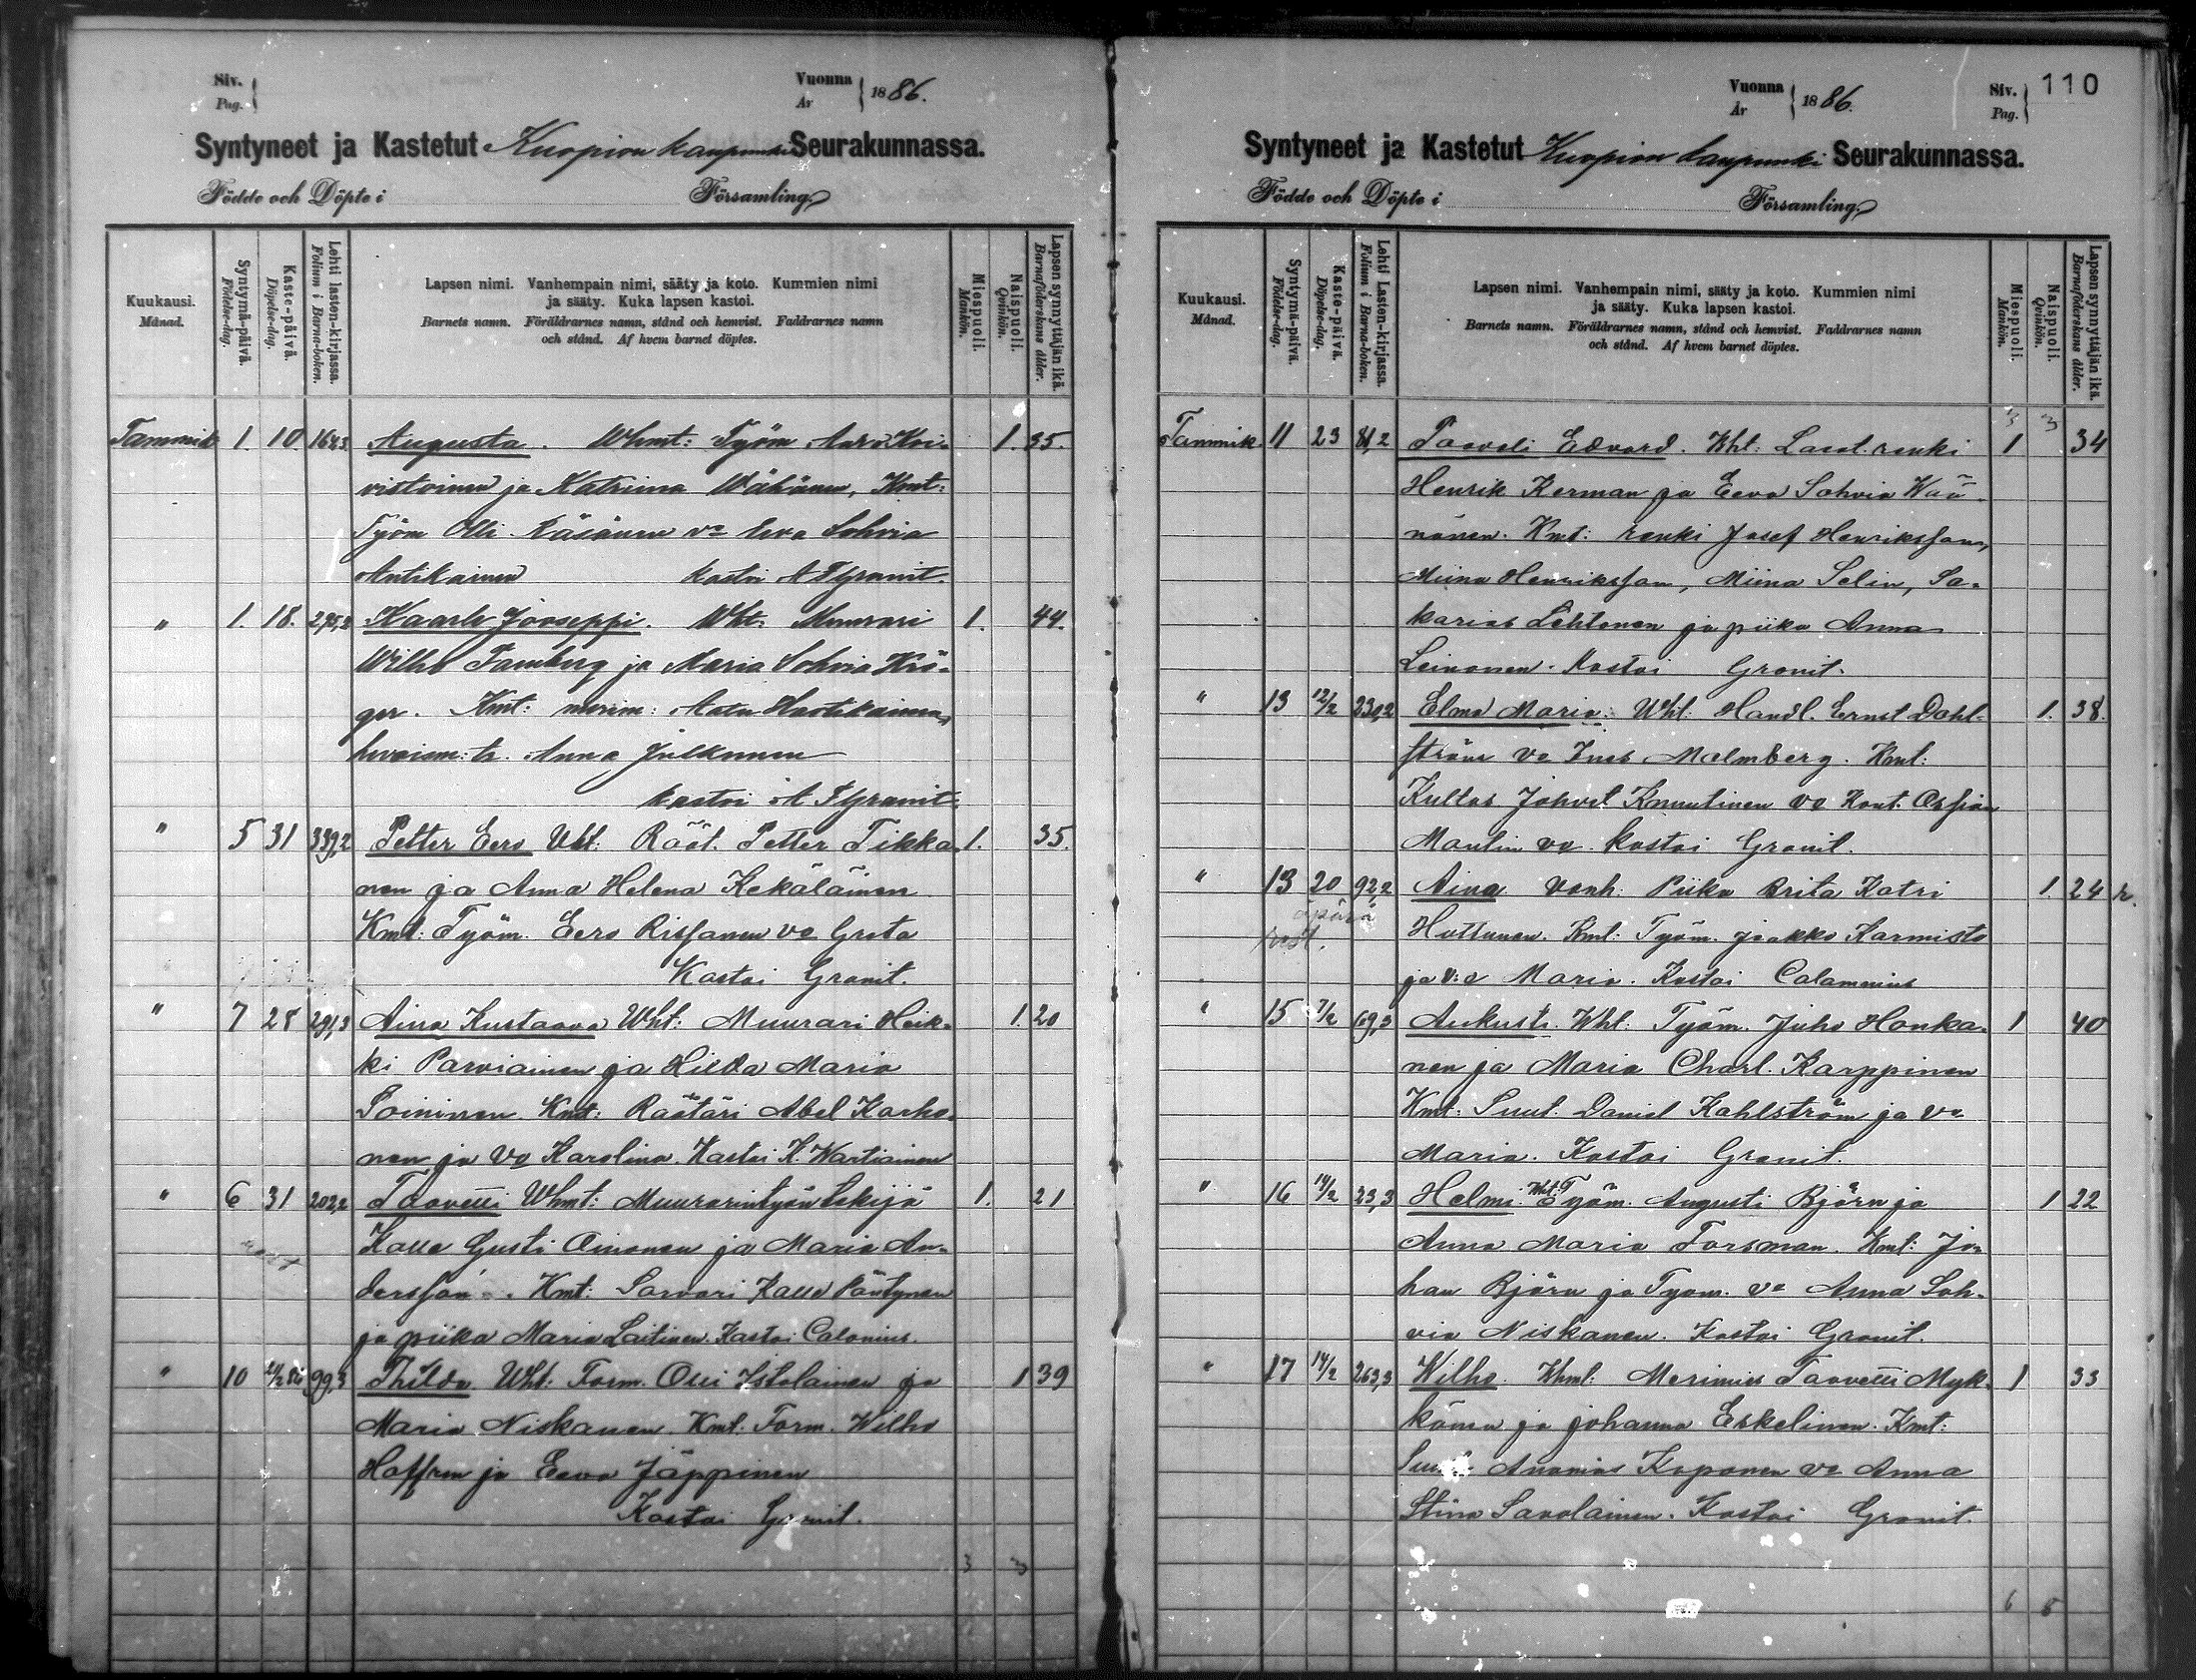 Siv.
Pag.
Vuonna
År
1886.
Syntyneet ja Kastetut Kuopion kaupunki Seurakunnassa.
Födde och Döpte i Församling.
Kuukausi.
Månad.
Syntymä-päivä.
Födelse-dag.
Kaste-päivä.
Döpelse-dag.
Lehti lasten-kirjassa.
Folium i Barna-boken.
Lapsen nimi. Vanhempain nimi, sääty ja koto. Kummien nimi
ja sääty. Kuka lapsen kastoi.
Barnets namn. Föräldrarnes namn, stånd och hemvist. Faddrarnes namn
och stånd. Af hvem barnet döptes.
Miespuoli.
Mankön.
Naispuoli.
Qvinkön.
Lapsen synnyttäjän ikä.
Barnaföderskans ålder.
Tammik 1. 10. 164,3 Augusta. Whmt: Työm Aaro Koi- 1. 35.
vistoinen ja Katriina Wähänen, Kmt:
Työm Olli Räsänen va Eva Sohvia
Antikainen kastoi A F Granit.
" 1. 18. 295,2 Kaarle Jooseppi. Wht. Muurari 1. 44.
Wilho Tamberg ja Maria Sohvia Krö-
ger. Kmt: merim: Aatu Hartikainen,
Anna Julkunen
kastoi A F Granit.
" 5 31 339,2 Petter Eero Vht: Räät. Petter Tikka- 1. 35.
nen ja Anna Helena Kekäläinen
Kmt: Työm. Eero Rissanen va Greta
Kastoi Granit.
" 7 28 291,3 Aina Kustaava Wht: Muurari Heik- 1. 20
ki Parviainen ja Hilda Maria
Soininen. Kmt: Räätäri Abel Karho-
nen ja va Karolina. Kastoi K. Wartiainen
" 6 31 202,2 Taavetti Whmt: Muurarintyön tekijä 1. 21
Kalle Gusti Oinonen ja Maria An-
dersson. Kmt: Sorvari Kalle Päntynen
ja piika Maria Laitinen. Kastoi Calonius.
" 10 99,3 Thilda Wht: Form. Olli Istolainen ja 1 39
Maria Niskanen. Kmt: Form. Wilho
Hoffren ja Eeva Jäppinen
Kastoi Granit.
3 3
Vuonna
År
1886.
Siv.
Pag.
110
Syntyneet ja Kastetut Kuopion kaupunki Seurakunnassa.
Födde och Döpte i Församling.
Kuukausi.
Månad.
Syntymä-päivä.
Födelse-dag.
Kaste-päivä.
Döpelse-dag.
Lehti Lasten-kirjassa.
Folium i Barna-boken.
Lapsen nimi. Vanhempain nimi, sääty ja koto. Kummien nimi
ja sääty. Kuka lapsen kastoi.
Barnets namn. Föräldrarnes namn, stånd och hemvist. Faddrarnes namn
och stånd. Af hvem barnet döptes.
Miespuoli.
Mankön.
Naispuoli.
Qvinkön.
Lapsen synnyttäjän ikä.
Barnaföderskans ålder.
3 3
Tammik. 11 23 81,2 Paavali Edvard. Wht: renki 1 34
Henrik Kerman ja Eeva Sohvia Wää-
nänen. Kmt: renki Josef Henriksson,
Miina Henriksson, Miina Selin, Sa-
karias Lehtonen ja piika Anna
Leinonen. Kastoi Granit.
" 13 12/2 230,2 Elma Maria. Wht: Handl. Ernst Dahl- 1. 38.
ström va Ines Malmberg. Kmt:
Kultas Johvet Knuutinen va Kont. Ossian
Maulin va. kastoi Granit.
" 13 20 92,2 Aina vanh: Piika Brita Katri 1. 24
äpärä
Huttunen. Kmt: Työm. Jaakko Karmisto
ja v:o Maria. Kastoi Calamnius
" 15 7/2 69,3 Aukusti. Wht: Työm. Juho Honka- 1 40
nen ja Maria Charl. Karppinen
Kmt: Suut. Daniel Kahlström ja va
Maria. Kastoi Granit.
" 16 14/2 23,3 Helmi. Wht: Työm. Augusti Björn ja 1 22
Anna Maria Forsman. Kmt: Jo-
han Björn ja Tyom. va Anna Soh-
via Niskanen. Kastoi Granit.
" 17 14/2 263,3 Wilho. Whmt: Merimies Taavetti Myk- 1 33
känen ja Johanna Eskelinen. Kmt:
Ananias Koponen va Anna
Stina Savolainen. Kastoi Granit.
6